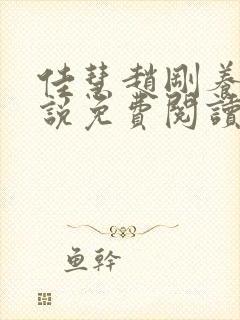 佳慧趙剛養
說免費閱讀
鱼幹